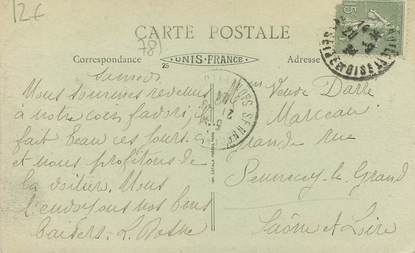 12€
CARTE POSTALE
(78)
Correspondance
UNIS-FRANCE
Adresse
Samedi
Nous sommes revenus
à notre coin favori, il
fait beau ces jours-ci
et nous profitons de
la voiture. Nous
t'envoyons nos bons
baisers.
Mme Veuve Darre
Marceau
Grande rue
Sennecey-le-Grand
Saône et Loire